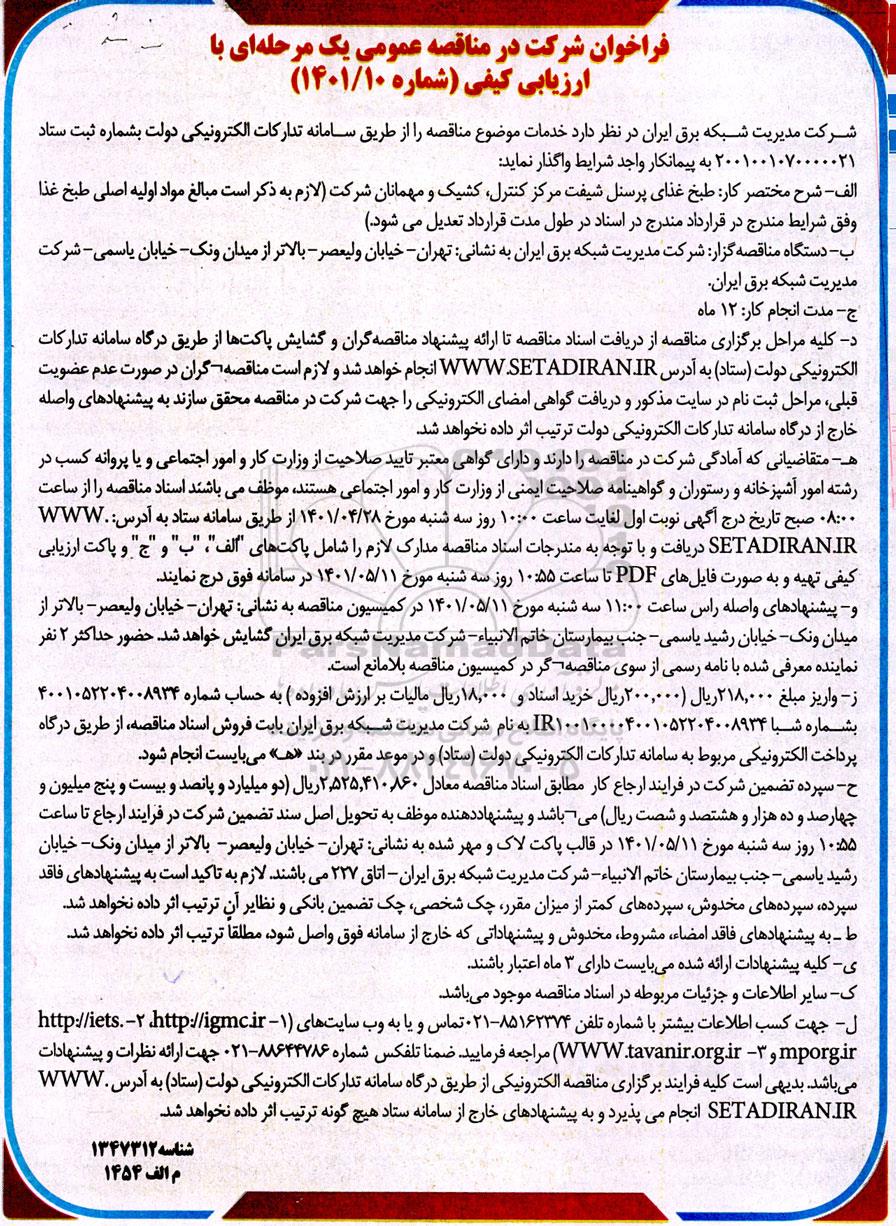 فراخوان شرکت در مناقصه عمومی یک مرحله‌ای با
ارزیابی کیفی (شماره ۱۴۰۱/۱۰)
شرکت مدیریت شبکه برق ایران در نظر دارد خدمات موضوع مناقصه را از طریق سامانه تدارکات الکترونیکی دولت بشماره ثبت ستاد
۲۰۰۱۰۰۱۰۷۰۰۰۰۰۲۱ به پیمانکار واجد شرایط واگذار نماید:
الف- شرح مختصر کار: طبخ غذای پرسنل شیفت مرکز کنترل، کشیک و مهمانان شرکت (لازم به ذکر است مبالغ مواد اولیه اصلی طبخ غذا
وفق شرایط مندرج در قرارداد مندرج در اسناد در طول مدت قرارداد تعدیل می شود.)
ب- دستگاه مناقصه‌گزار: شرکت مدیریت شبکه برق ایران به نشانی: تهران- خیابان ولیعصر- بالاتر از میدان ونک- خیابان یاسمی- شرکت
مدیریت شبکه برق ایران.
ج- مدت انجام کار: ۱۲ ماه
د- کلیه مراحل برگزاری مناقصه از دریافت اسناد مناقصه تا ارائه پیشنهاد مناقصه‌گران و گشایش پاکت‌ها از طریق درگاه سامانه تدارکات
الکترونیکی دولت (ستاد) به آدرس WWW.SETADIRAN.IR انجام خواهد شد و لازم است مناقصه¬گران در صورت عدم عضویت
قبلی، مراحل ثبت نام در سایت مذکور و دریافت گواهی امضای الکترونیکی را جهت شرکت در مناقصه محقق سازند به پیشنهادهای واصله
خارج از درگاه سامانه تدارکات الکترونیکی دولت ترتیب اثر داده نخواهد شد.
هـ- متقاضیانی که آمادگی شرکت در مناقصه را دارند و دارای گواهی معتبر تایید صلاحیت از وزارت کار و امور اجتماعی و یا پروانه کسب در
رشته امور آشپزخانه و رستوران و گواهینامه صلاحیت ایمنی از وزارت کار و امور اجتماعی هستند، موظف می باشند اسناد مناقصه را از ساعت
۰۸:۰۰ صبح تاریخ درج آگهی نوبت اول لغایت ساعت ۱۰:۰۰ روز سه شنبه مورخ ۱۴۰۱/۰۴/۲۸ از طریق سامانه ستاد به آدرس: WWW.
SETADIRAN.IR دریافت و با توجه به مندرجات اسناد مناقصه مدارک لازم را شامل پاکت‌های "الف"، "ب" و "ج" و پاکت ارزیابی
کیفی تهیه و به صورت فایل‌های PDF تا ساعت ۱۰:۵۵ روز سه شنبه مورخ ۱۴۰۱/۰۵/۱۱ در سامانه فوق درج نمایند.
و- پیشنهادهای واصله راس ساعت ۱۱:۰۰ سه شنبه مورخ ۱۴۰۱/۰۵/۱۱ در کمیسیون مناقصه به نشانی: تهران- خیابان ولیعصر- بالاتر از
میدان ونک- خیابان رشید یاسمی- جنب بیمارستان خاتم الانبیاء- شرکت مدیریت شبکه برق ایران گشایش خواهد شد. حضور حداکثر ۲ نفر
نماینده معرفی شده با نامه رسمی از سوی مناقصه¬گر در کمیسیون مناقصه بلامانع است.
ز- واریز مبلغ ۲۱۸,۰۰۰ریال (۲۰۰,۰۰۰ریال خرید اسناد و ۱۸,۰۰۰ریال مالیات بر ارزش افزوده ) به حساب شماره ۴۰۰۱۰۵۲۲۰۴۰۰۸۹۳۴
بشماره شبا IR۱۰۰۱۰۰۰۰۴۰۰۱۰۵۲۲۰۴۰۰۸۹۳۴ به نام شرکت مدیریت شبکه برق ایران بابت فروش اسناد مناقصه، از طریق درگاه
پرداخت الکترونیکی مربوط به سامانه تدارکات الکترونیکی دولت (ستاد) و در موعد مقرر در بند «هـ» می‌بایست انجام شود.
ح- سپرده تضمین شرکت در فرایند ارجاع کار مطابق اسناد مناقصه معادل ۲,۵۲۵,۴۱۰,۸۶۰ریال (دو میلیارد و پانصد و بیست و پنج میلیون و
چهارصد و ده هزار و هشتصد و شصت ریال) می¬باشد و پیشنهاددهنده موظف به تحویل اصل سند تضمین شرکت در فرایند ارجاع تا ساعت
۱۰:۵۵ روز سه شنبه مورخ ۱۴۰۱/۰۵/۱۱ در قالب پاکت لاک و مهر شده به نشانی: تهران- خیابان ولیعصر- بالاتر از میدان ونک- خیابان
رشید یاسمی- جنب بیمارستان خاتم الانبیاء- شرکت مدیریت شبکه برق ایران- اتاق ۲۲۷ می باشند. لازم به تاکید است به پیشنهادهای فاقد
سپرده، سپرده‌های مخدوش، سپرده‌های کمتر از میزان مقرر، چک شخصی، چک تضمین بانکی و نظایر آن ترتیب اثر داده نخواهد شد.
ط ـ به پیشنهادهای فاقد امضاء، مشروط، مخدوش و پیشنهاداتی که خارج از سامانه فوق واصل شود، مطلقاً ترتیب اثر داده نخواهد شد.
ی- کلیه پیشنهادات ارائه شده می‌بایست دارای ۳ ماه اعتبار باشند.
ک- سایر اطلاعات و جزئیات مربوطه در اسناد مناقصه موجود می‌باشد.
ل- جهت کسب اطلاعات بیشتر با شماره تلفن ۸۵۱۶۲۳۷۴-۰۲۱تماس و یا به وب سایت‌های (۱- http://igmc.ir، ۲- http://iets.
mporg.ir و ۳- WWW.tavanir.org.ir) مراجعه فرمایید. ضمنا تلفکس شماره ۸۸۶۴۴۷۸۶-۰۲۱ جهت ارائه نظرات و پیشنهادات
می‌باشد. بدیهی است کلیه فرایند برگزاری مناقصه الکترونیکی از طریق درگاه سامانه تدارکات الکترونیکی دولت (ستاد) به آدرس WWW.
SETADIRAN.IR انجام می پذیرد و به پیشنهادهای خارج از سامانه ستاد هیچ گونه ترتیب اثر داده نخواهد شد.
شناسه ۱۳۴۷۳۱۲
م الف ۱۴۵۴
ParsNamadData
۰۲۱-۸۸۳۴۹۶۷۰-۵